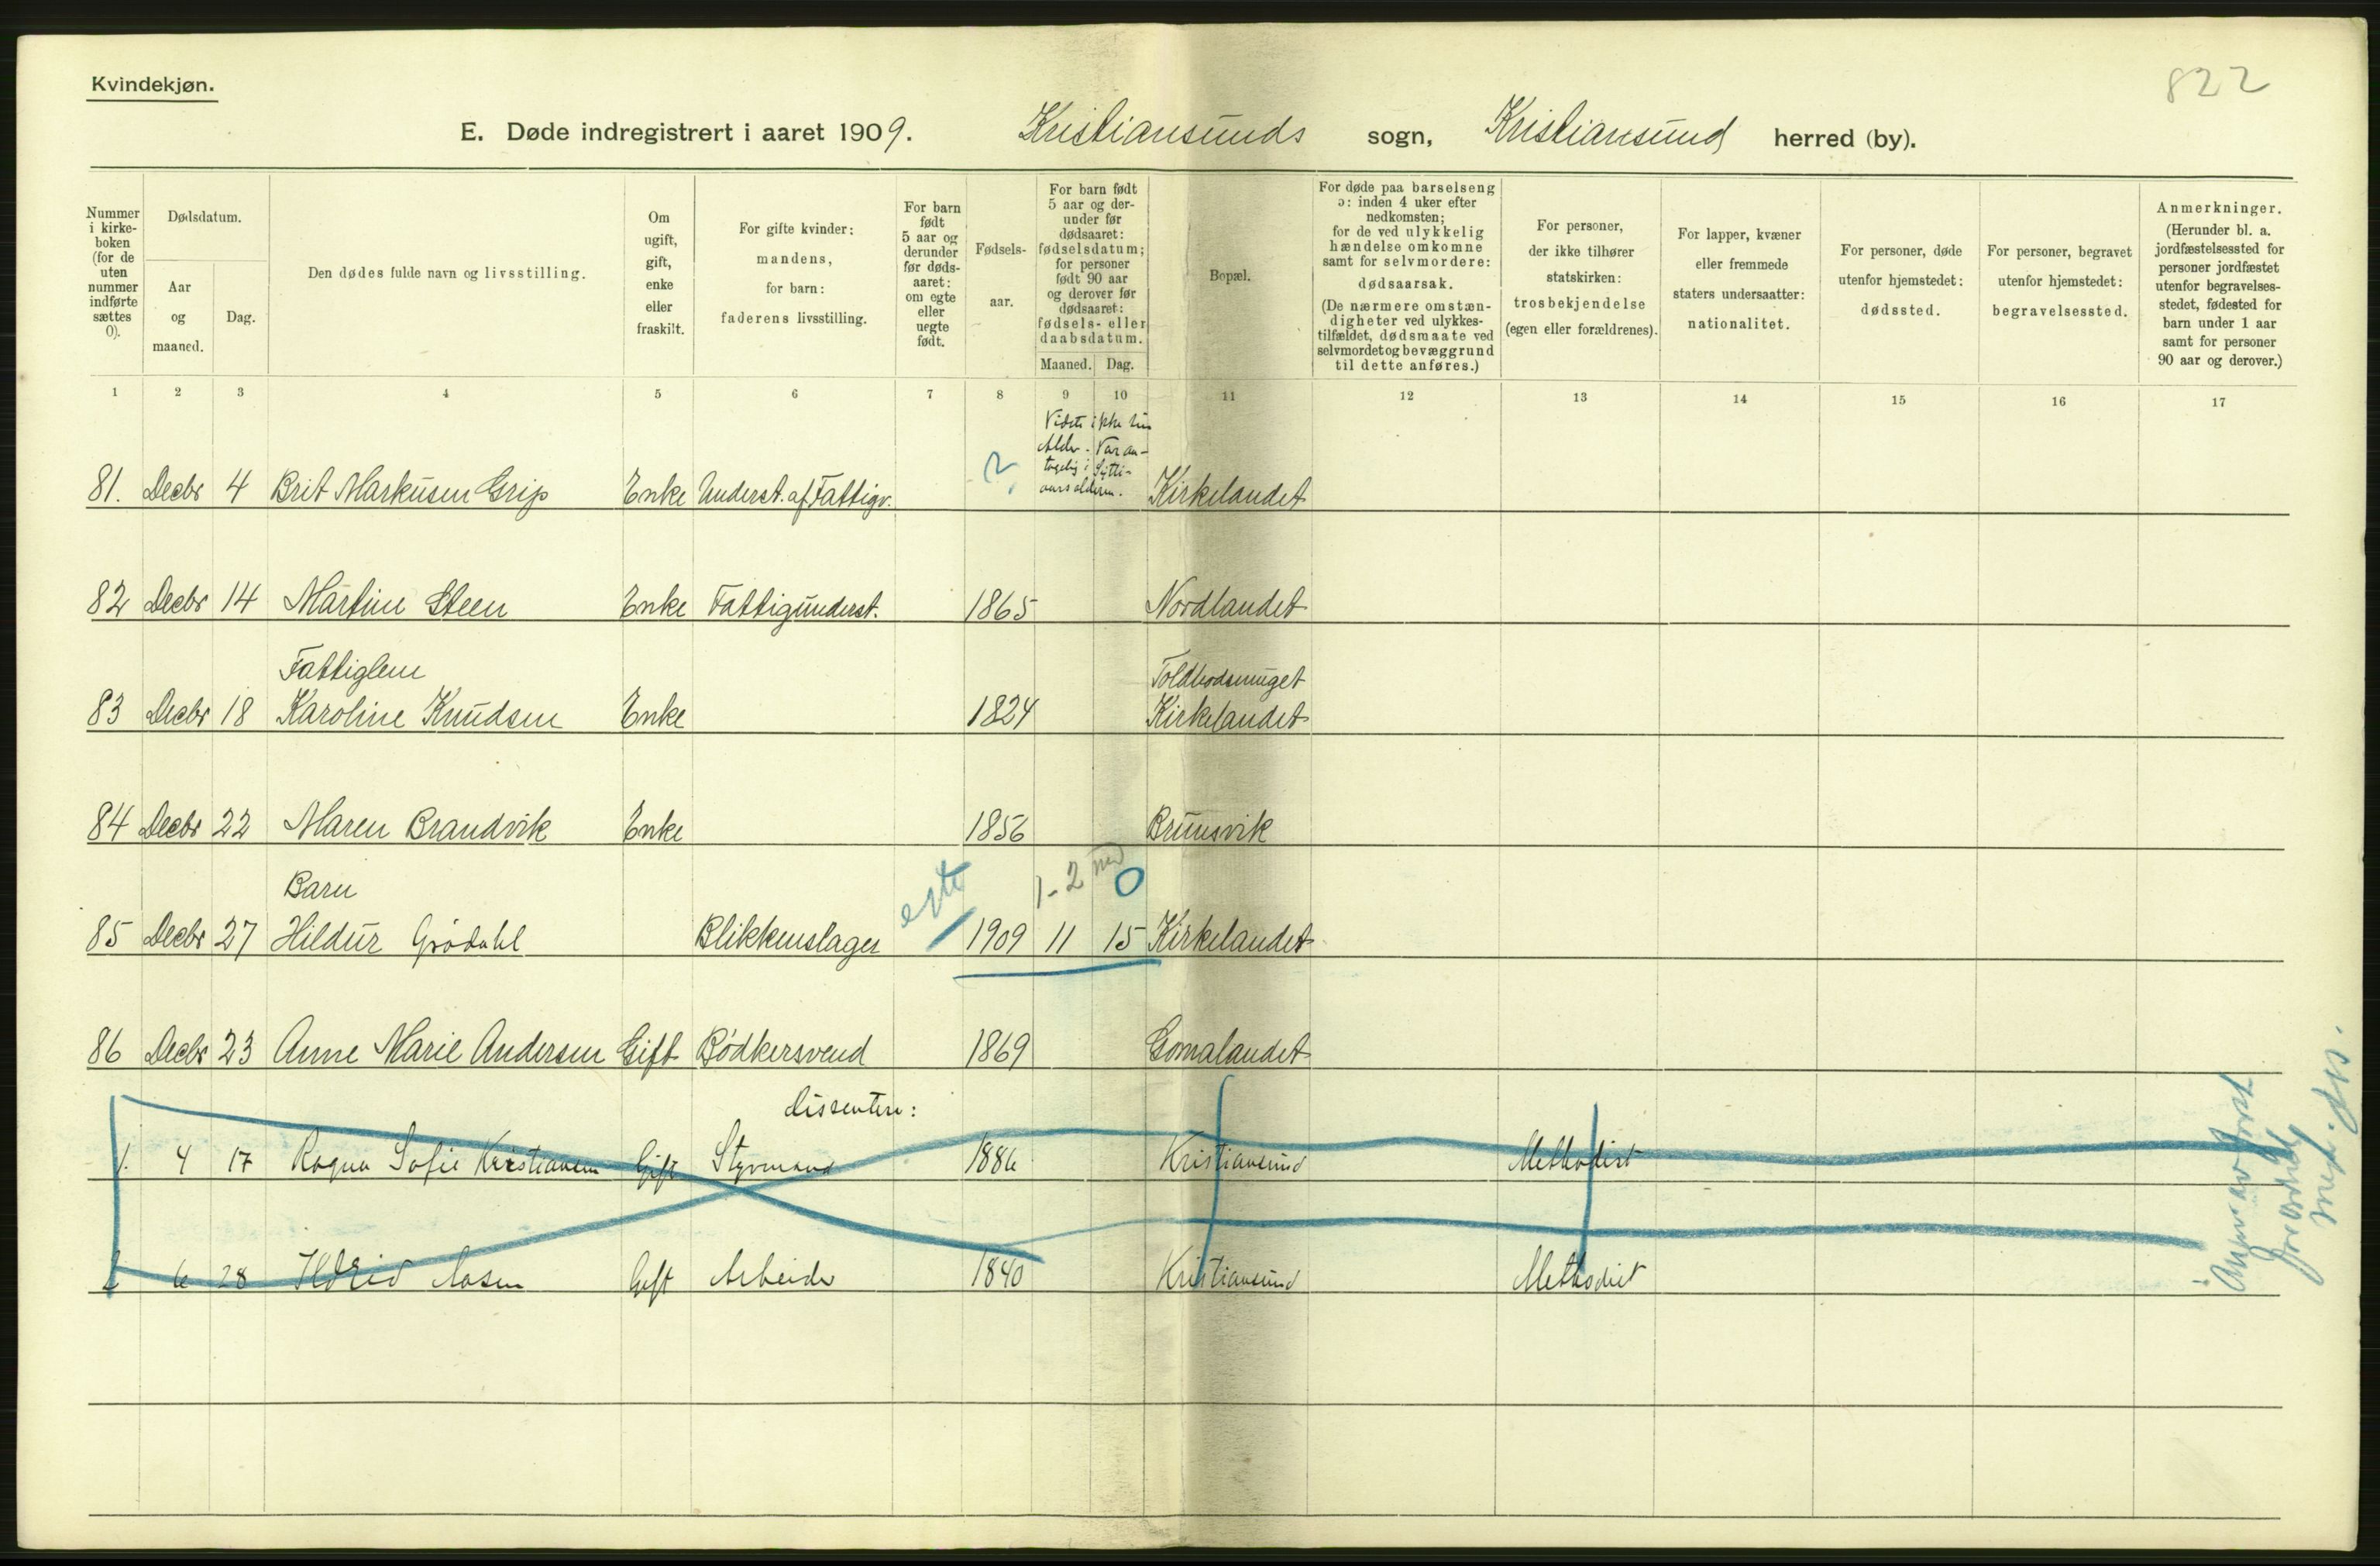 Kvindekjøn.
822
E. Døde indregistrert i aaret 1909. Kristiansunds sogn, Kristiansund herred (by).
Nummer i kirke- boken (for de uten nummer indførte sættes 0).
Dødsdatum.
Aar og maaned.
Dag.
Den dødes fulde navn og livsstilling.
Om ugift, gift, enke eller fraskilt.
For gifte kvinder: mandens, for barn: faderens livsstilling.
For barn født 5 aar og derunder før døds- aaret: om egte eller uegte født.
Fødsels- aar.
For barn født 5 aar og der- under før dødsaaret: fødselsdatum; for personer født 90 aar og derover før dødsaaret: fødsels- eller daabsdatum.
Maaned. Dag.
Bopæl.
For døde paa barselseng ɔ: inden 4 uker efter nedkomsten; for de ved ulykkelig hændelse omkomne samt for selvmordere: dødsaarsak. (De nærmere omstæn- digheter ved ulykkes- tilfældet, dødsmaate ved selvmordet og bevæggrund til dette anføres.)
For personer, der ikke tilhører statskirken: trosbekjendelse (egen eller forældrenes).
For lapper, kvæner eller fremmede staters undersaatter: nationalitet.
For personer, døde utenfor hjemstedet: dødssted.
For personer, begravet utenfor hjemstedet: begravelsessted.
Anmerkninger. (Herunder bl. a. jordfæstelsessted for personer jordfæstet utenfor begravelses- stedet, fødested for barn under 1 aar samt for personer 90 aar og derover.)
1 2 3 4 5 6 7 8 9 10 11 12 13 14 15 16 17
Vidste ikke sin
Alder. Var an-
tagelig i Sytti-
aarsalderen.
81. Decbr 4 Brit Markusen Grip Enke Underst. af Fattigv. ? Kirkelandet
82 Decbr 14 Martine Steen Enke Fattigunderst. 1865 Nordlandet
Fattiglem Toldbodsmuget
83 Decbr 18 Karoline Knudsen Enke 1824 Kirkelandet
84 Decbr 22 Maren Brandvik Enke 1856 Brunsvik
Barn egte 1-2 md 0
85 Decbr 27 Hildur Grødahl Blikkenslager 1909 11 15 Kirkelandet
86 Decbr 23 Anne Marie Andersen Gift Bødkersvend 1869 Gomalandet
Dissentere:
1. 4 17 Ragna Sofie Kristiansen Gift Styrmand 1886 Kristiansund Methodist
2 6 28 Aasen Gift Arbeider 1840 Kristiansund Methodist